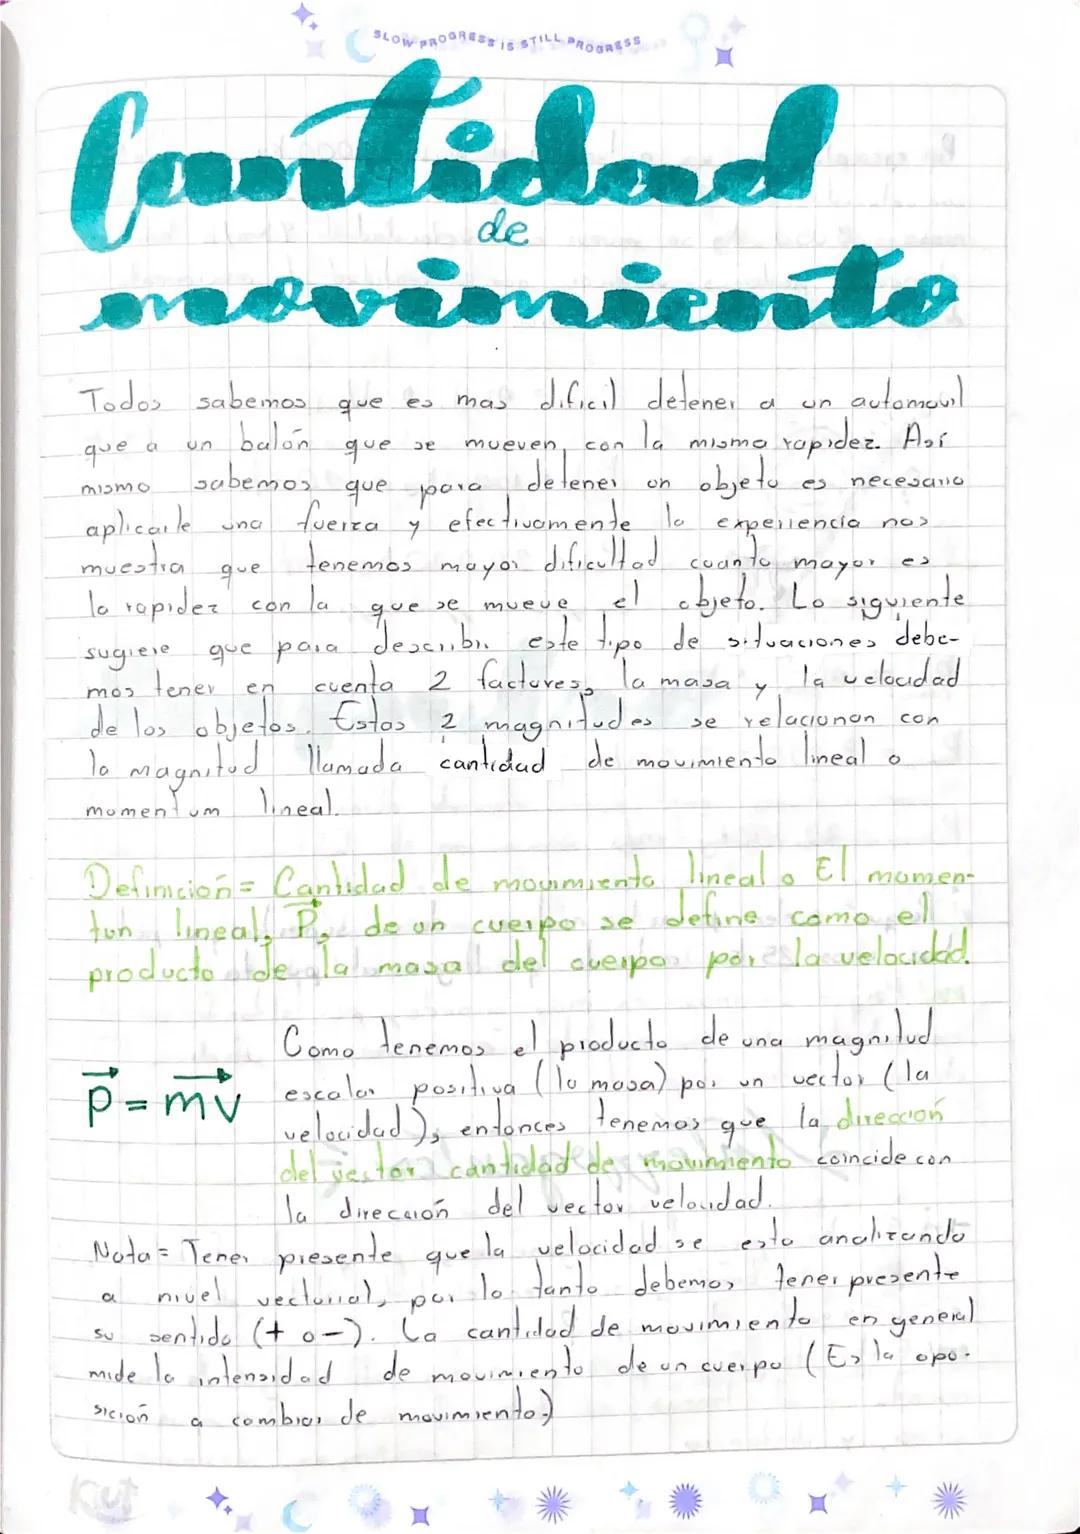 SLOW PROGRESS IS STILL PROGRESS
Cantidad
de
movimiento
Todos sabemos que es mas dificil detener a un automovil
que a un balón que se mueven, con la misma rapidez. Así
mismo sabemos que para detener un objeto es necesario
aplicarle una fuerza y efectivamente la experiencia nos
muestra que tenemos mayor dificultad cuanto mayor es
la rapidez con la que se mueve el objeto. Lo siguiente
sugiere que para describir este tipo de situaciones debe-
mos tener en cuenta 2 factores, la masa y la velocidad
de los objetos. Estas 2 magnitudes se relacionan con
la magnitud llamada cantidad de movimiento lineal o
momentum lineal.
Definición= Cantidad de movimiento lineal o El momen-
tun lineal, P, de un cuerpo se define como el
producto de la masa del cuerpo por la velocidad.
Como tenemos el producto de una magnitud
escalar positiva (la masa) por un vector (la
P = mv
velocidad), entonces tenemos que la dirección
del vector cantidad de movimiento coincide con
la dirección del vector velocidad.
Nota= Tener presente que la velocidad se esta analizando
a nivel vectorial, por lo tanto debemos tener presente
su sentido (+ o -). La cantidad de movimiento en general
mide la intensidad de movimiento de un cuerpo (Es la opo-
sición a cambiar de movimiento)
Kut